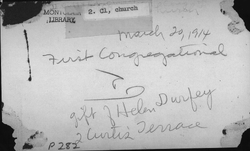 2. Cl, church
MON
LIBRARY
March 29, 1914
First Congregational
gift of Helen Durfey
2 Curtis Terrace
P 282